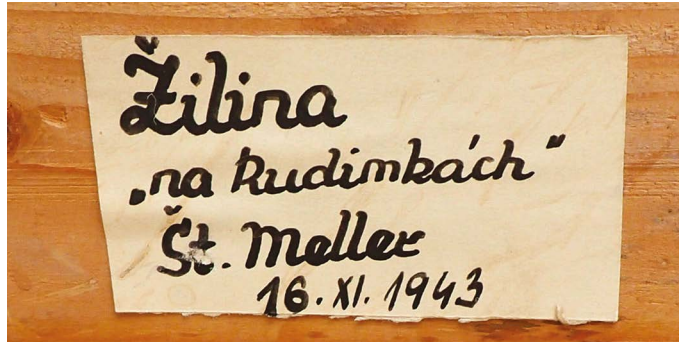 Žilina
„na Rudimkách“
Št. Meller
16. XI. 1943